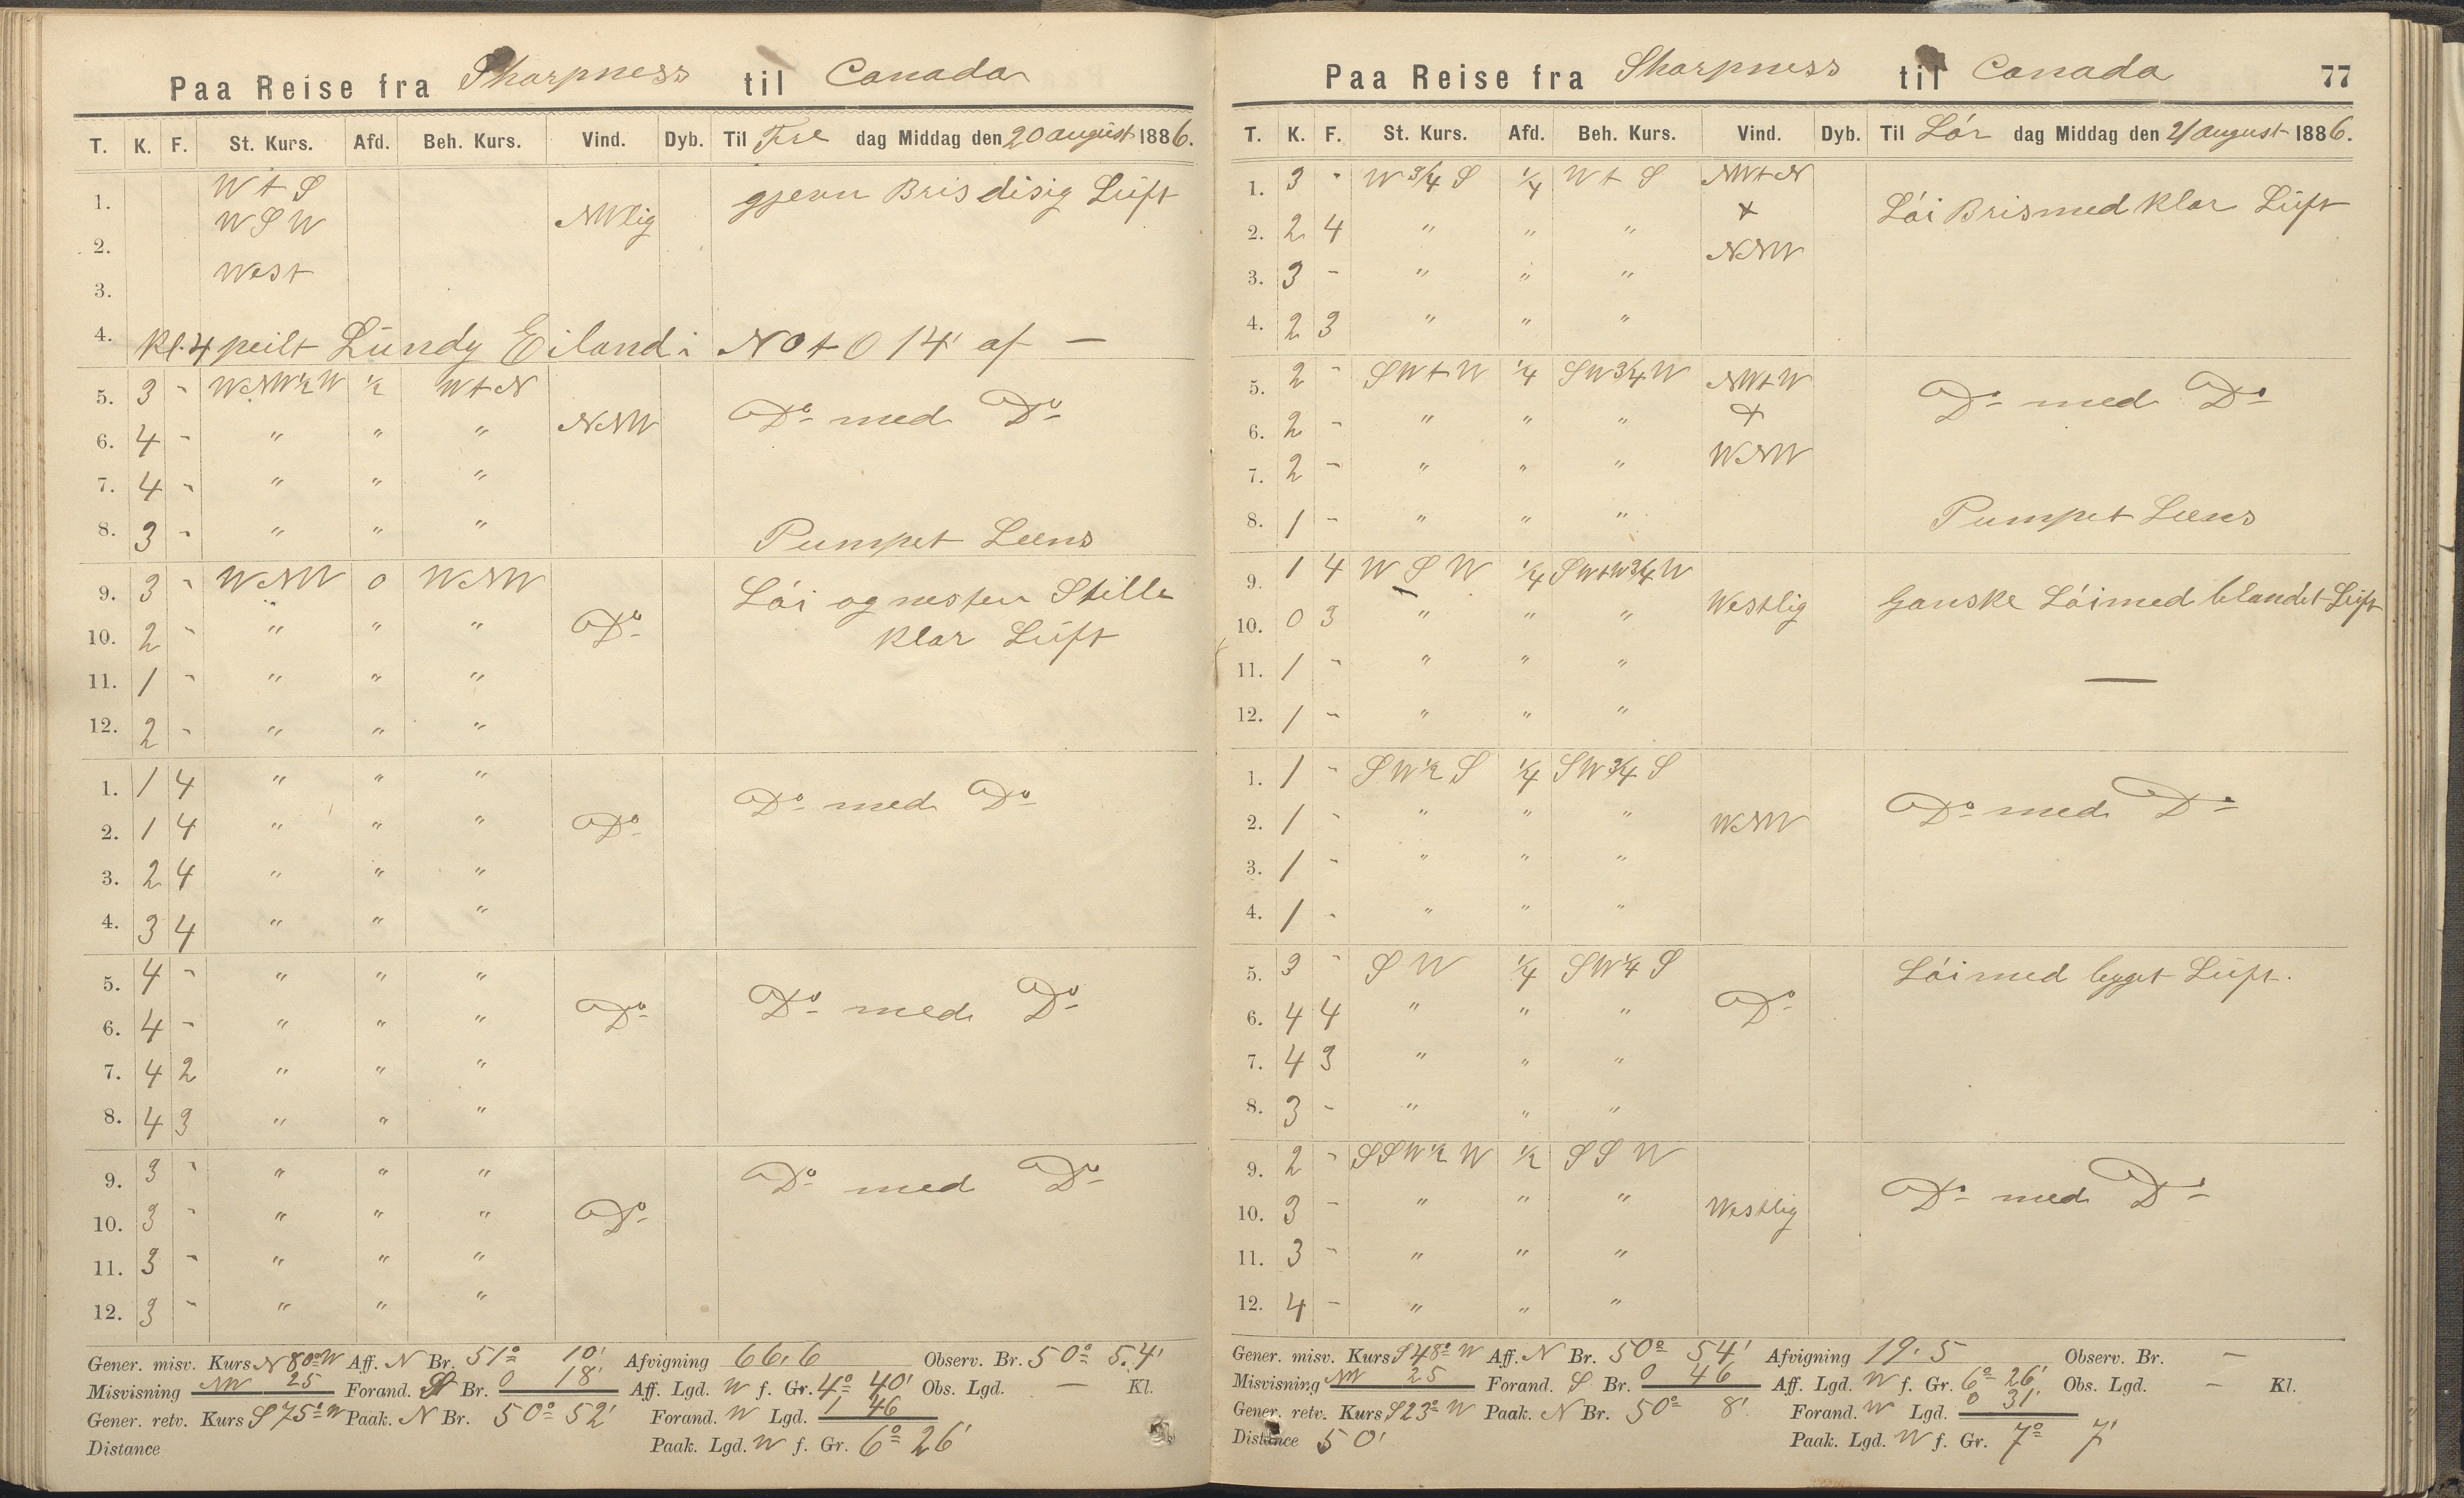 Paa Reise fra Sharpness til Canada
T. K. F. St. Kurs. Afd. Beh. Kurs. Vind. Dyb. Til Fre dag Middag den 20 august 1886.
1. W t S gjevn Bris disig Lúft
2. W S W NWlig
3. West
4. Kl. 4 peilt Lúndy Eiland i NO t O 14' af —
5. 3 - WNW½W ½ W t N
6. 4 - " " " NNW Do med Do
7. 4 - " " "
8. 3 - " " " Pumpet Læns
9. 3 - WNW 0 WNW Lói og nesten Stille
10. 2 - " " " Do klar Lúft
11. 1 - " " "
12. 2 - " " "
1. 1 4 " " " Do med Do
2. 1 4 " " " Do
3. 2 4 " " "
4. 3 4 " " "
5. 4 - " " "
6. 4 - " " " Do Do med Do
7. 4 2 " " "
8. 4 3 " " "
9. 3 - " " " Do med Do
10. 3 - " " " Do
11. 3 - " " "
12. 3 - " " "
Gener. misv. Kurs N 80° W Aff. N Br. 51° 10' Afvigning 66,6 Observ. Br. 50° 54'
Misvisning NW 25 Forand. S Br. 0 18' Aff. Lgd. W f. Gr. 4° 40' Obs. Lgd. — Kl.
Gener. retv. Kurs S 75° W Paak. N Br. 50° 52' Forand. W Lgd. 1 46
Distance Paak. Lgd. W f. Gr. 6° 26'
Paa Reise fra Sharpness til Canada 77
T. K. F. St. Kurs. Afd. Beh. Kurs. Vind. Dyb. Til Lór dag Middag den 21 august 1886.
1. 3 - W ¾ S ¼ W t S NWtN
2. 2 4 " " " + Lói Bris med klar Lúft
3. 3 - " " " NNW
4. 2 3 " " "
5. 2 - SW t W ¼ SW ¾ W NWtW Do med Do
6. 2 - " " " +
7. 2 - " " " WNW
8. 1 - " " " Pumpet Læns
9. 1 4 W S W ¼ SWtW¾W
10. 0 3 " " " Westlig Ganske Lói med blandet Lúft
11. 1 - " " " —
12. 1 - " " "
1. 1 - SW½S ¼ SW¾S
2. 1 - " " " WNW Do med Do
3. 1 - " " "
4. 1 - " " "
5. 3 - S W ¼ SW¼S Lói med bygget Lúft.
6. 4 4 " " " Do
7. 4 3 " " "
8. 3 - " " "
9. 2 - SSW½W ½ S S W
10. 3 - " " " Westlig Do med Do
11. 3 - " " "
12. 4 - " " "
Gener. misv. Kurs S 48° W Aff. N Br. 50° 54' Afvigning 19.5 Observ. Br. —
Misvisning NW 25 Forand. S Br. 0 46 Aff. Lgd. W f. Gr. 6° 26' Obs. Lgd. — Kl.
Gener. retv. Kurs S 23° W Paak. N Br. 50° 8' Forand. W Lgd. 0 31'
Distance 50' Paak. Lgd. W f. Gr. 7° 7'